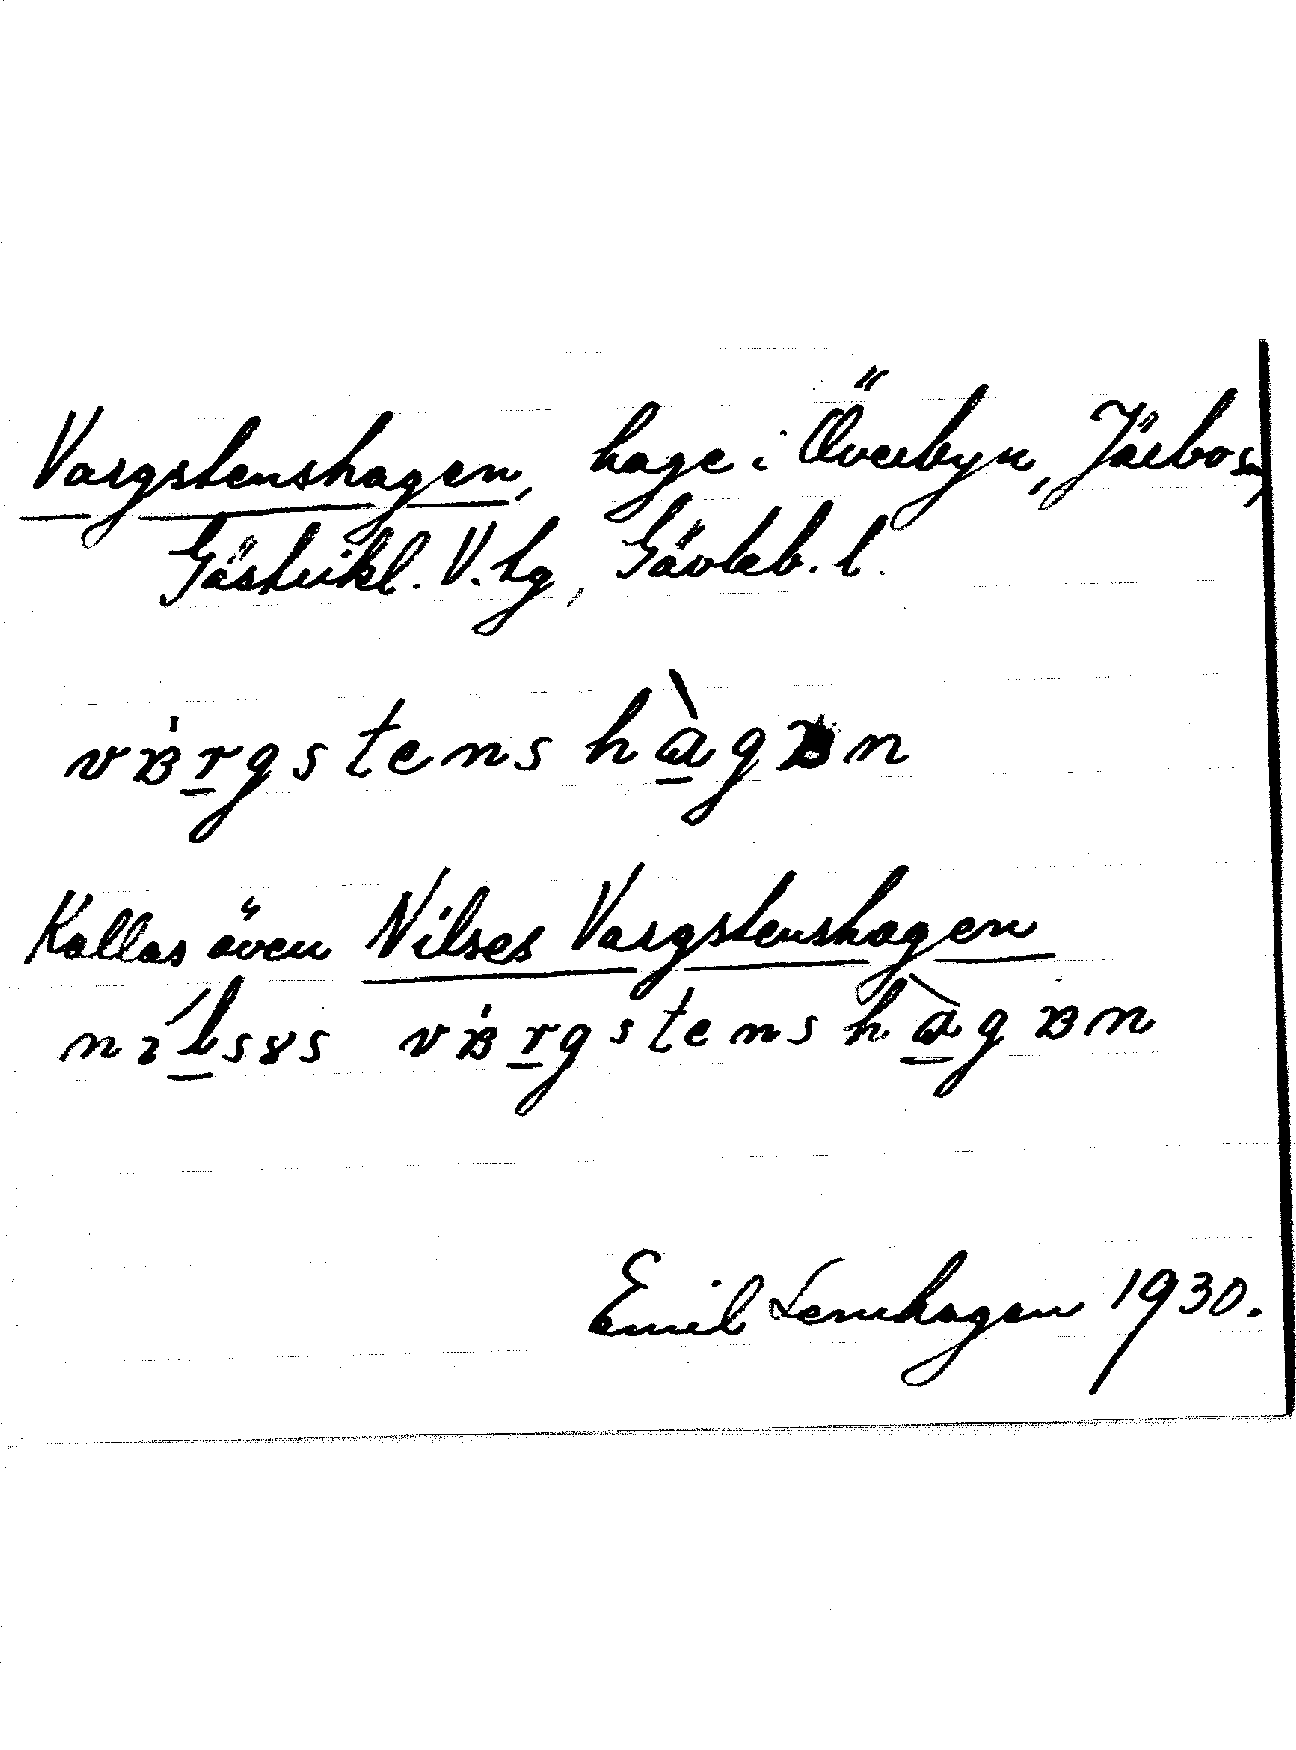 Vargstenshagen, hage i Överbyn, Järbo sn,
Gästrikl. V. tg, Gävleb. l.
vʙ̀rgstenshàgʙn
Kallas även Nilses Vargstenshagen
nɪ́lsɘs vʙ̀rgstenshàgʙn
Emil Lernhagen 1930.